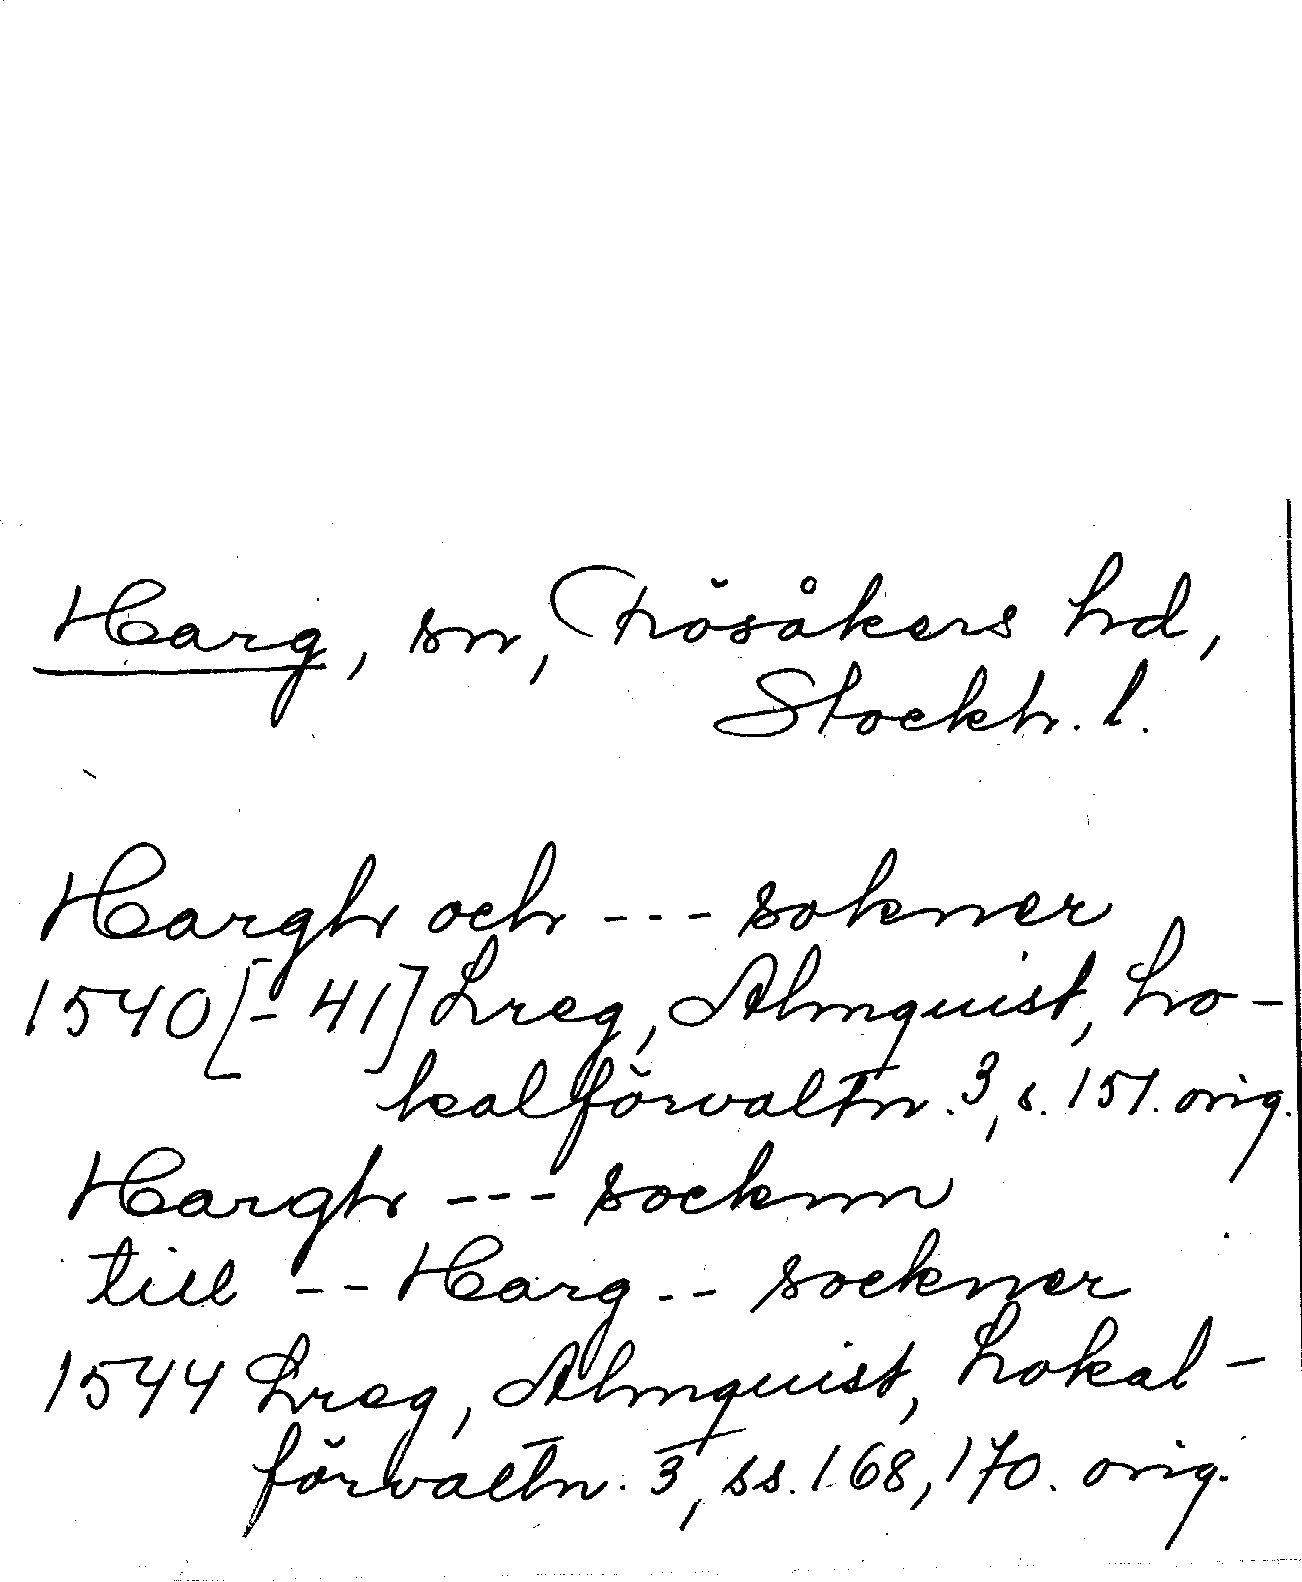 Harg, sn, Frösåkers hd,
Stockh. l.
Hargh och --- sokner
1540[-41] Lreg, Almquist, Lo-
kalförvaltn. 3, s. 151. orig.
Hargh --- socknn
till -- Harg -- sockner
1544 Lreg, Almquist, Lokal-
förvaltn. 3, ss. 168, 170. orig.